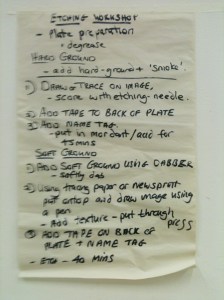 ETCHING WORKSHOP
- Plate preparation
• degrease
HARD GROUND
- add hard-ground + 'smoke'
① DRAW or TRACE ON IMAGE,
- score with etching-needle.
② ADD TAPE TO BACK OF PLATE
③ ADD NAME TAG
- put in mordant/acid for
15 mins
SOFT GROUND
① ADD SOFT GROUND USING DABBER
- softly dab
② Using tracing paper or newsprint
put on top and draw image using
a pen
- Add texture - put through
press
③ ADD TAPE ON BACK OF
PLATE + NAME TAG
- ETCH - 40 MINS